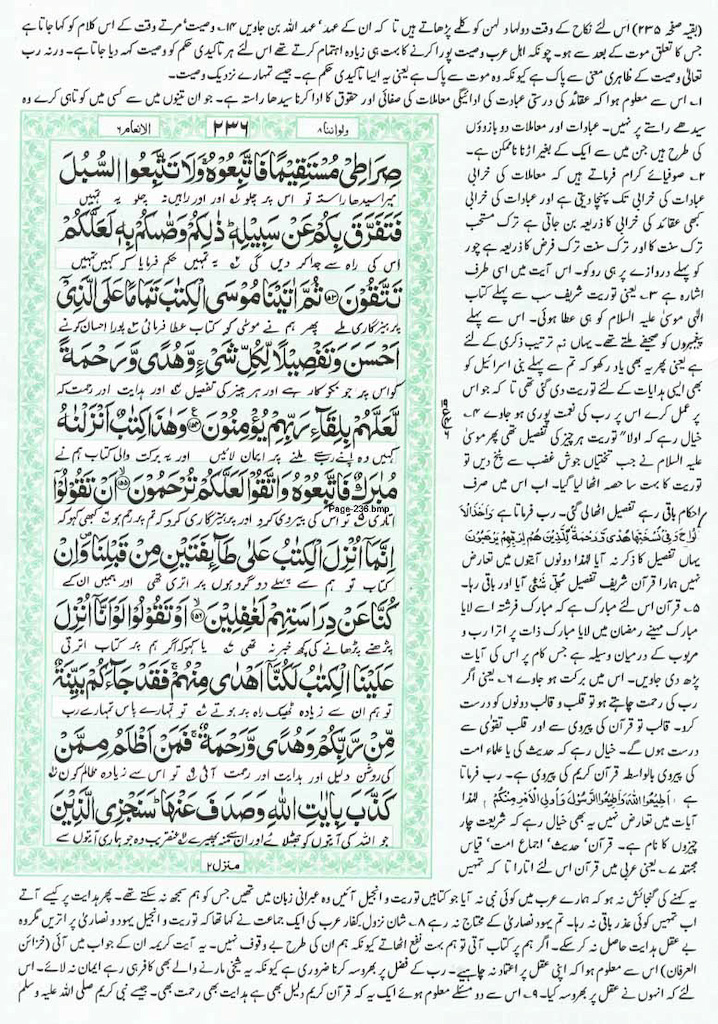 (بقیہ صفحہ ۲۳۵) اس لئے نکاح کے وقت دولہا دلہن کو کلمے پڑھاتے ہیں تا کہ ان کے عہد، عہد اللہ بن جاویں ۱۴۔ وصیت، مرتے وقت کے اس کلام کو کہا جاتا ہے
جس کا تعلق موت کے بعد سے ہو۔ چونکہ اہل عرب وصیت پورا کرنے کا بہت ہی زیادہ اہتمام کرتے تھے اس لئے ہر تاکیدی حکم کو وصیت کہہ دیا جاتا ہے۔ ورنہ رب
تعالیٰ وصیت کے ظاہری معنی سے پاک ہے کیونکہ وہ موت سے پاک ہے یعنی یہ ایسا تاکیدی حکم ہے۔ جیسے تمہارے نزدیک وصیت۔
۱۔ اس سے معلوم ہوا کہ عقائد کی درستی عبادت کی ادائیگی معاملات کی صفائی اور حقوق کا ادا کرنا سیدھا راستہ ہے۔ جو ان تینوں میں سے کسی میں کوتاہی کرے وہ
سیدھے راستے پر نہیں۔ عبادات اور معاملات دو بازوؤں
کی طرح ہیں جن میں سے ایک کے بغیر اڑنا ناممکن ہے۔
۲۔ صوفیائے کرام فرماتے ہیں کہ معاملات کی خرابی
عبادات کی خرابی تک پہنچا دیتی ہے اور عبادات کی خرابی
کبھی عقائد کی خرابی کا ذریعہ بن جاتی ہے ترک مستحب
ترک سنت کا اور ترک سنت ترک فرض کا ذریعہ ہے چور
کو پہلے دروازے پر ہی روکو۔ اس آیت میں اسی طرف
اشارہ ہے ۳۔ یعنی توریت شریف سب سے پہلے کتاب
الٰہی موسیٰ علیہ السلام کو ہی عطا ہوئی۔ اس سے پہلے
پیغمبروں کو صحیفے ملتے تھے۔ یہاں ثم ترتیب ذکری کے لئے
ہے یعنی پھر یہ بھی یاد رکھو کہ تم سے پہلے بنی اسرائیل کو
بھی ایسی ہدایات کے لئے توریت دی گئی تھی تا کہ جو اس
پر عمل کرے اس پر رب کی نعمت پوری ہو جاوے ۴۔
خیال رہے کہ اولاً توریت ہر چیز کی تفصیل تھی پھر موسیٰ
علیہ السلام نے جب تختیاں جوش غضب سے پٹخ دیں تو
توریت کا بہت سا حصہ اٹھا لیا گیا۔ اب اس میں صرف
احکام باقی رہے تفصیل اٹھالی گئی۔ رب فرماتا ہے وَاَخَذَ الْاَ
لْوَاحَ وَفِیْ نُسْخَتِهَا هُدًى وَّرَحْمَةٌ لِّلَّذِیْنَ هُمْ لِرَبِّهِمْ یَرْهَبُوْنَ
یہاں تفصیل کا ذکر نہ آیا لہٰذا دونوں آیتوں میں تعارض
نہیں ہمارا قرآن شریف تفصیل کل شئی آیا اور باقی رہا۔
۵۔ قرآن اس لئے مبارک ہے کہ مبارک فرشتہ اسے لایا
مبارک مہینے رمضان میں لایا مبارک ذات پر اترا رب و
مربوب کے درمیان وسیلہ ہے جس کام پر اس کی آیات
پڑھ دی جاویں۔ اس میں برکت ہو جاوے ۶۔ یعنی اگر
رب کی رحمت چاہتے ہو تو قلب و قالب دونوں کو درست
کرو۔ قالب تو قرآن کی پیروی سے اور قلب تقویٰ سے
درست ہوں گے۔ خیال رہے کہ حدیث کی یا علماء امت
کی پیروی بالواسطہ قرآن کریم کی پیروی ہے۔ رب فرماتا
ہے اَطِیْعُوا اللّٰهَ وَاَطِیْعُوا الرَّسُوْلَ وَاُولِی الْاَمْرِ مِنْكُمْ لہٰذا
آیات میں تعارض نہیں یہ بھی خیال رہے کہ شریعت چار
چیزوں کا نام ہے۔ قرآن، حدیث، اجماع امت، قیاس
مجتہد ۷۔ یعنی عربی میں قرآن اس لئے اتارا تا کہ تمہیں
ولواننا ۸
۲۳۶
الانعام ۶
صِرَاطِیْ مُسْتَقِیْمًا فَاتَّبِعُوْهُ ۚ وَلَا تَتَّبِعُوا السُّبُلَ
میرا سیدھا راستہ تو اس پر چلو اور اور راہیں نہ چلو کہ تمہیں
فَتَفَرَّقَ بِكُمْ عَنْ سَبِیْلِهٖ ؕ ذٰلِكُمْ وَصّٰىكُمْ بِهٖ لَعَلَّكُمْ
اس کی راہ سے جدا کر دیں گی یہ تمہیں حکم فرمایا کہ کہیں تمہیں
تَتَّقُوْنَ ﴿۱۵۳﴾ ثُمَّ اٰتَیْنَا مُوْسَى الْكِتٰبَ تَمَامًا عَلَى الَّذِیْۤ
پرہیزگاری ملے پھر ہم نے موسیٰ کو کتاب عطا فرمائی پورا احسان کرنے
اَحْسَنَ وَتَفْصِیْلًا لِّكُلِّ شَیْءٍ وَّهُدًى وَّرَحْمَةً
کو اس پر جو نکو کار ہے اور ہر چیز کی تفصیل اور ہدایت اور رحمت کہ
لَّعَلَّهُمْ بِلِقَآءِ رَبِّهِمْ یُؤْمِنُوْنَ ﴿۱۵۴﴾ وَهٰذَا كِتٰبٌ اَنْزَلْنٰهُ
کہیں وہ اپنے رب سے ملنے پر ایمان لائیں اور یہ برکت والی کتاب ہم نے
مُبٰرَكٌ فَاتَّبِعُوْهُ وَاتَّقُوْا لَعَلَّكُمْ تُرْحَمُوْنَ ﴿۱۵۵﴾ اَنْ تَقُوْلُوْۤا
Page-236.bmp
اتاری تو اس کی پیروی کرو اور پرہیزگاری کرو کہ تم پر رحم ہو کبھی کہو کہ
اِنَّمَاۤ اُنْزِلَ الْكِتٰبُ عَلٰى طَآئِفَتَیْنِ مِنْ قَبْلِنَا ۪ وَاِنْ
کتاب تو ہم سے پہلے دو گروہوں پر اتری تھی اور ہمیں ان کے
كُنَّا عَنْ دِرَاسَتِهِمْ لَغٰفِلِیْنَ ﴿۱۵۶﴾ اَوْ تَقُوْلُوْا لَوْ اَنَّاۤ اُنْزِلَ
پڑھنے پڑھانے کی کچھ خبر نہ تھی یا کہو کہ اگر ہم پر کتاب اترتی
عَلَیْنَا الْكِتٰبُ لَكُنَّاۤ اَهْدٰى مِنْهُمْ ۚ فَقَدْ جَآءَكُمْ بَیِّنَةٌ
تو ہم ان سے زیادہ ٹھیک راہ پر ہوتے تو تمہارے پاس تمہارے رب
مِّنْ رَّبِّكُمْ وَهُدًى وَّرَحْمَةٌ ۚ فَمَنْ اَظْلَمُ مِمَّنْ
کی روشن دلیل اور ہدایت اور رحمت آئی تو اس سے زیادہ ظالم کون
كَذَّبَ بِاٰیٰتِ اللّٰهِ وَصَدَفَ عَنْهَا ؕ سَنَجْزِی الَّذِیْنَ
جو اللہ کی آیتوں کو جھٹلائے اور ان سے منہ پھیرے عنقریب وہ جو ہماری آیتوں سے
منزل ۲
یہ کہنے کی گنجائش نہ ہو کہ ہمارے عرب میں کوئی نبی نہ آیا جو کتابیں توریت و انجیل آئیں وہ عبرانی زبان میں تھیں جس کو ہم سمجھ نہ سکتے تھے۔ پھر ہدایت پر کیسے آتے
اب تمہیں کوئی عذر باقی نہ رہا۔ تم یہود نصاریٰ کے محتاج نہ رہے ۸۔ شان نزول کفار عرب کی ایک جماعت نے کہا تھا کہ توریت و انجیل یہود و نصاریٰ پر اتریں مگر وہ
بے عقل ہدایت حاصل نہ کر سکے۔ اگر ہم پر کتاب آتی تو ہم بہت نفع اٹھاتے کیونکہ ہم ان کی طرح بے وقوف نہیں۔ یہ آیت کریمہ ان کے جواب میں آئی (خزائن
العرفان) اس سے معلوم ہوا کہ اپنی عقل پر اعتماد نہ چاہیے۔ رب کے فضل پر بھروسہ کرنا ضروری ہے کیونکہ یہ شیخی مارنے والے بھی کافر ہی رہے ایمان نہ لائے۔ اس
لئے کہ انہوں نے عقل پر بھروسہ کیا۔ ۹۔ اس سے دو مسئلے معلوم ہوئے ایک یہ کہ قرآن کریم دلیل بھی ہے ہدایت بھی رحمت بھی۔ جیسے نبی کریم صلی اللہ علیہ و سلم